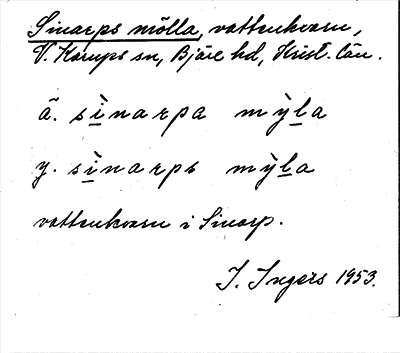 Sinarps mölla, vattenkvarn,
V. Karups sn, Bjäre hd, Krist. län.
ä. sı̱̀narpa mỳḻa
y. sı̱̀narps mỳḻa
vattenkvarn i Sinarp.
I. Ingers 1953.